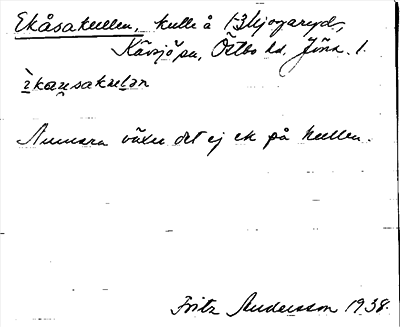 Ekåsakullen, kulle å 1-3 Hjogaryd,
Kävsjö sn, Östbo hd. Jönk. l.
Numera växer det ej ek på kullen.
Fritz Andersson 1938.